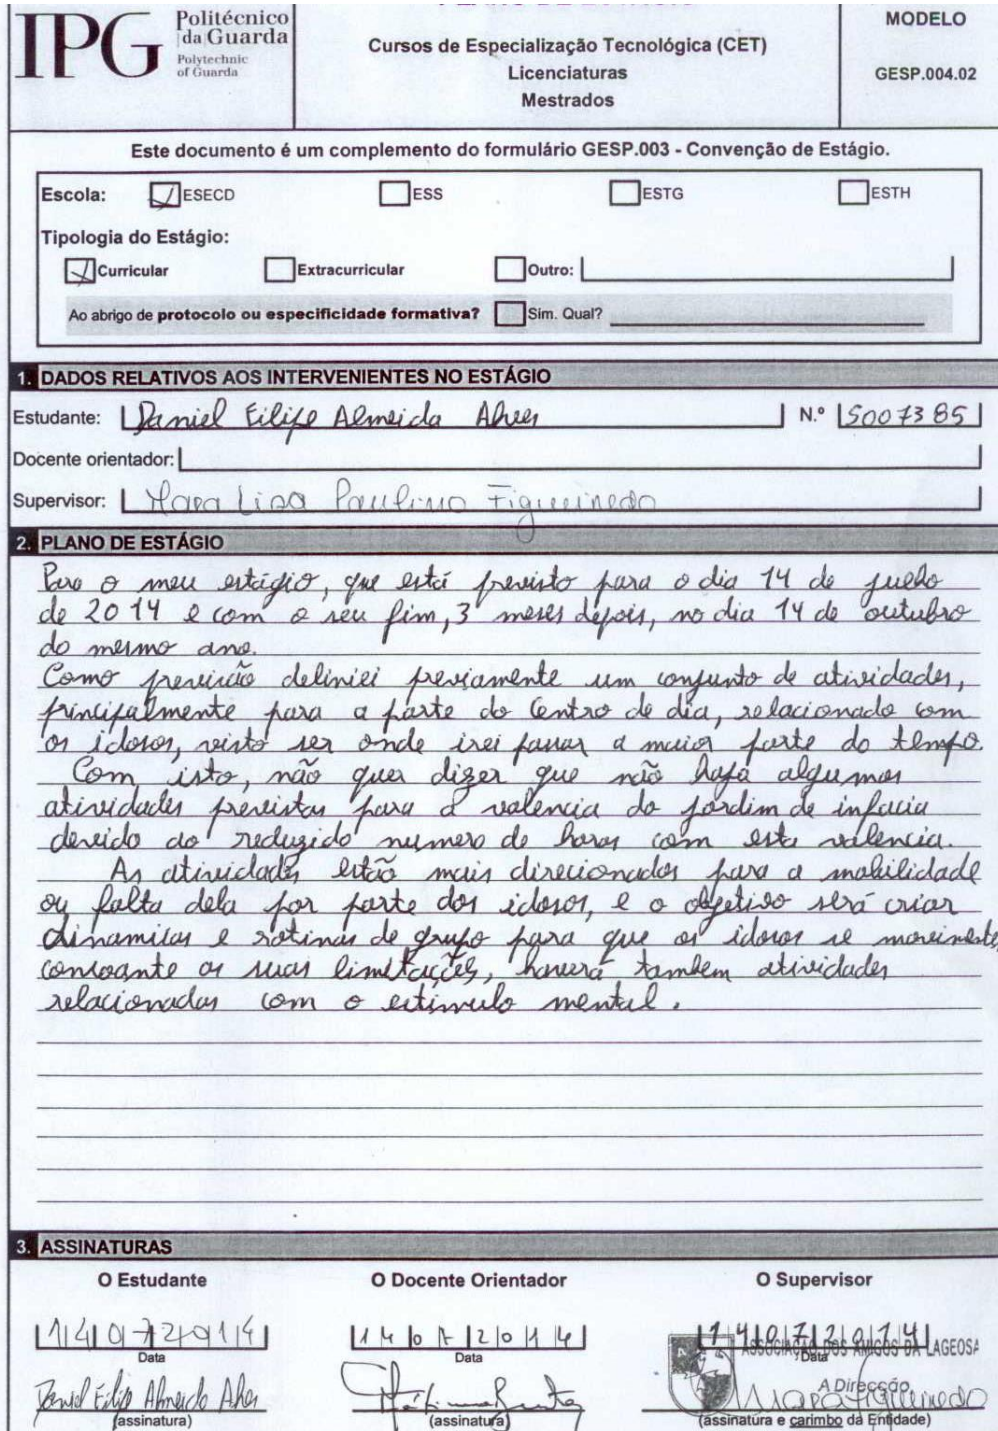 IPG
Politécnico
da Guarda
Polytechnic
of Guarda
Cursos de Especialização Tecnológica (CET)
Licenciaturas
Mestrados
MODELO
GESP.004.02
Este documento é um complemento do formulário GESP.003 - Convenção de Estágio.
Escola: ESECD ESS ESTG ESTH
Tipologia do Estágio:
Curricular Extracurricular Outro:
Ao abrigo de protocolo ou especificidade formativa? Sim. Qual?
1. DADOS RELATIVOS AOS INTERVENIENTES NO ESTÁGIO
Estudante: Daniel Filipe Almeida Alves N.º 5007385
Docente orientador:
Supervisor: Mara Lisa Paulino Figueiredo
2. PLANO DE ESTÁGIO
Para o meu estágio, que está previsto para o dia 14 de julho
de 2014 e com o seu fim, 3 meses depois, no dia 14 de outubro
do mesmo ano.
Como previsão deliniei previamente um conjunto de atividades,
principalmente para a parte do Centro de dia, relacionado com
os idosos, visto ser onde irei passar a maior parte do tempo.
Com isto, não quer dizer que não haja algumas
atividades previstas para a valencia do jardim de infacia
devido ao reduzido numero de horas com esta valencia.
As atividades estão mais direcionados para a mobilidade
ou falta dela por parte dos idosos, e o objetivo será criar
dinamicas e rotinas de grupo para que os idosos se movimente,
consoante as suas limitações, haverá tambem atividades
relacionadas com o estimulo mental.
3. ASSINATURAS
O Estudante O Docente Orientador O Supervisor
14072014 14072014 14072014
Data Data Data
ASSOCIAÇÃO DOS AMIGOS DA LAGEOSA
A Direcção
Daniel Filipe Almeida Alves Mara Figueiredo
(assinatura) (assinatura) (assinatura e carimbo da Entidade)